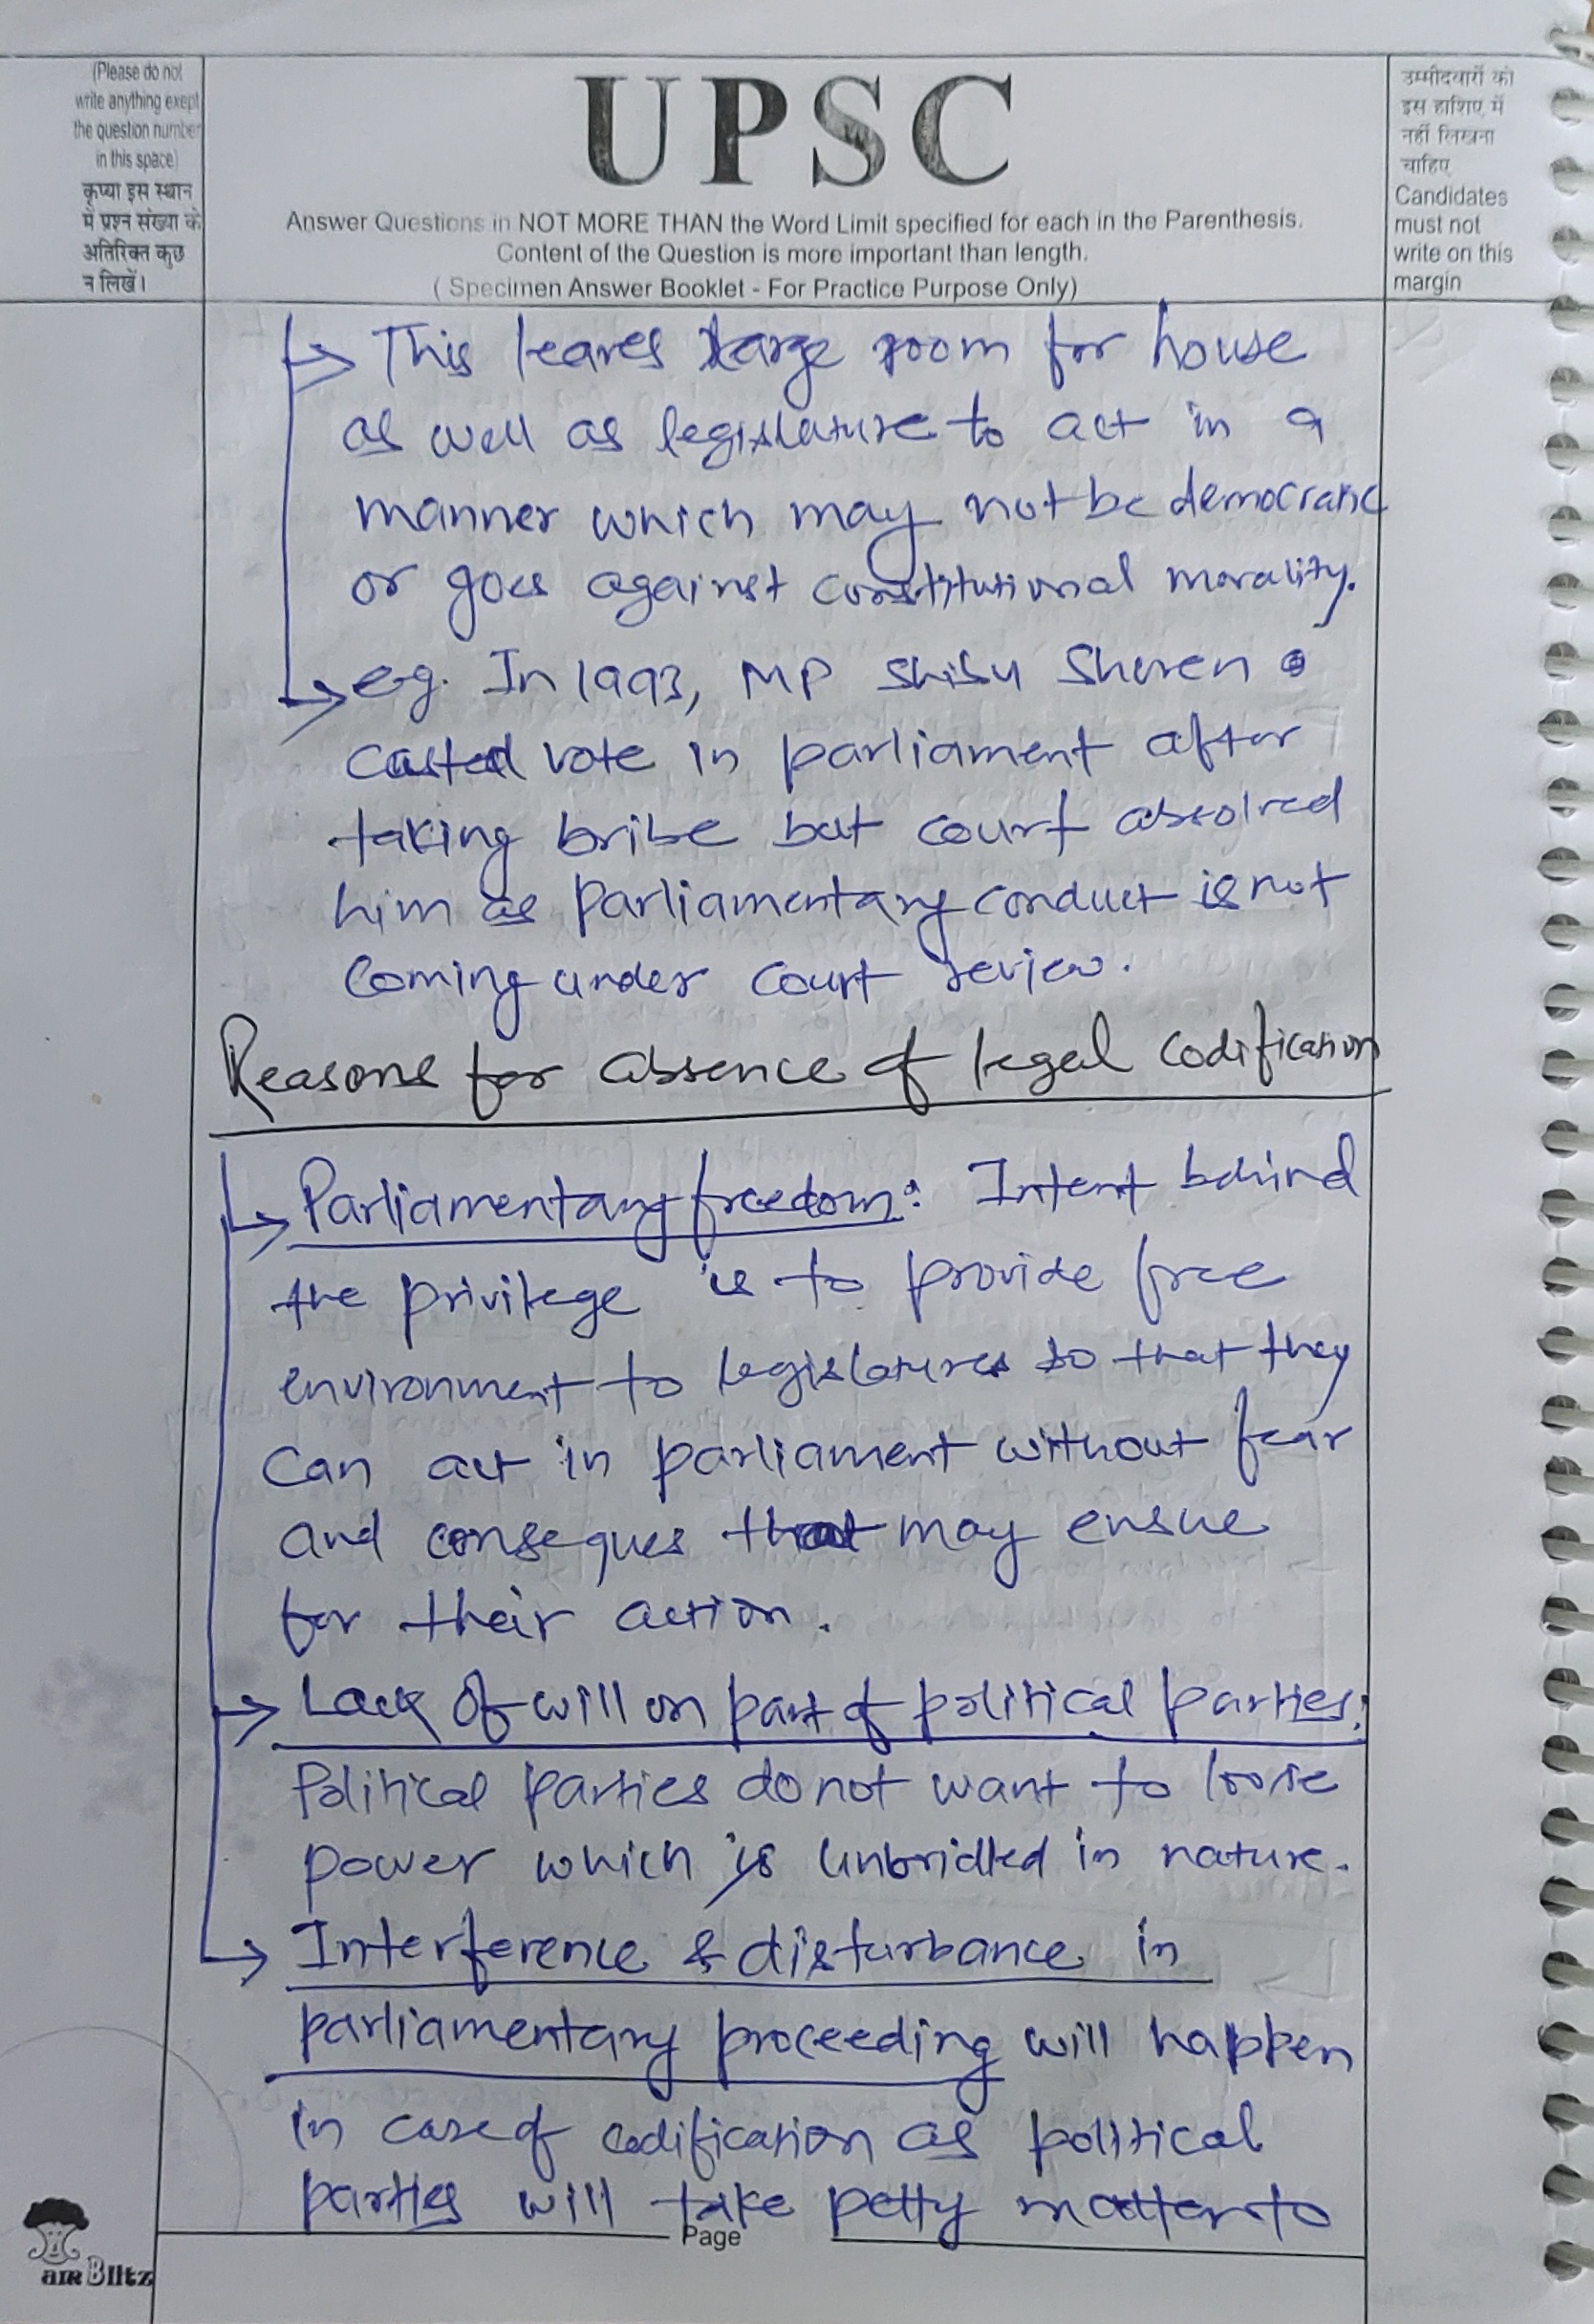 (Please do not
write anything exept
the question number
in this space)
कृप्या इस स्थान
में प्रश्न संख्या के
अतिरिक्त कुछ
न लिखें।
UPSC
Answer Questions in NOT MORE THAN the Word Limit specified for each in the Parenthesis.
Content of the Question is more important than length.
( Specimen Answer Booklet - For Practice Purpose Only)
उम्मीदवारों को
इस हाशिए में
नहीं लिखना
चाहिए
Candidates
must not
write on this
margin
→ This leaves large room for house
as well as legislature to act in a
manner which may not be democratic
or goes against constitutional morality.
→ eg. In 1993, MP Shibu Shoren
casted vote in parliament after
taking bribe but court absolved
him as parliamentary conduct is not
coming under court review.
Reasons for absence of legal codification
→ Parliamentary freedom: Intent behind
the privilege is to provide free
environment to legislatures so that they
can act in parliament without fear
and conseques that may ensue
for their action.
→ Lack of will on part of political parties:
Political parties do not want to loose
power which is unbridled in nature.
→ Interference & disturbance in
parliamentary proceeding will happen
in case of codification as political
parties will take petty matter to
Page
aim Blitz